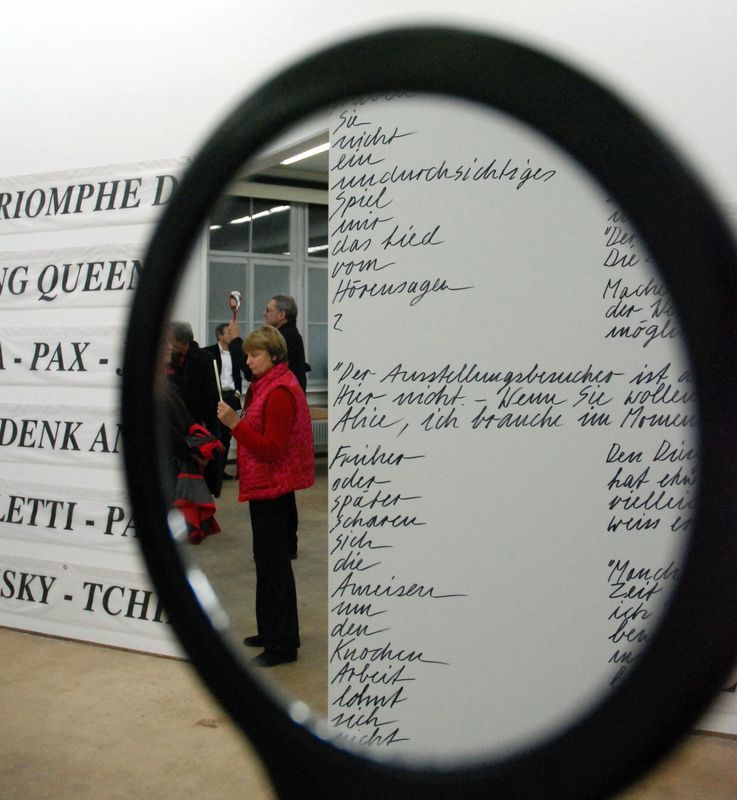 RIOMPHE D
NG QUEEN
A - PAX - J
DENK AN
LETTI - PA
SKY - TCHI
Sie
nicht
ein
undurchsichtiges
Spiel
mir
das Lied
vom
Hörensagen
?
"Der Ausstellungsbesucher ist
Hier nicht. – Wenn Sie wollen
Alice, ich brauche im Momen
Früher
oder
später
scharen
sich
die
Ameisen
um
den
Knochen
Arbeit
lohnt
sich
nicht
"Der
Die
Mache
der We
mögli
Den Dün
hat etw
vielleic
weiss es
"Manch
Zeit
ich